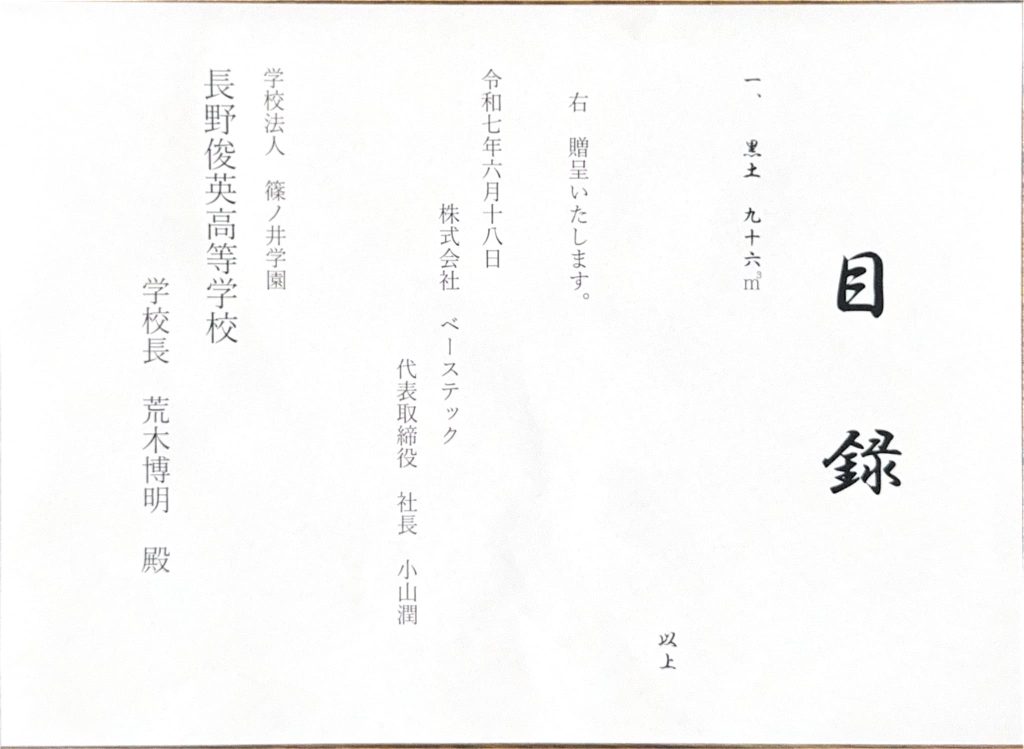 目録
一、 黒土 九十六㎥
以上
右 贈呈いたします。
令和七年六月十八日
株式会社 ベーステック
代表取締役 社長 小山潤
学校法人 篠ノ井学園
長野俊英高等学校
学校長 荒木博明 殿